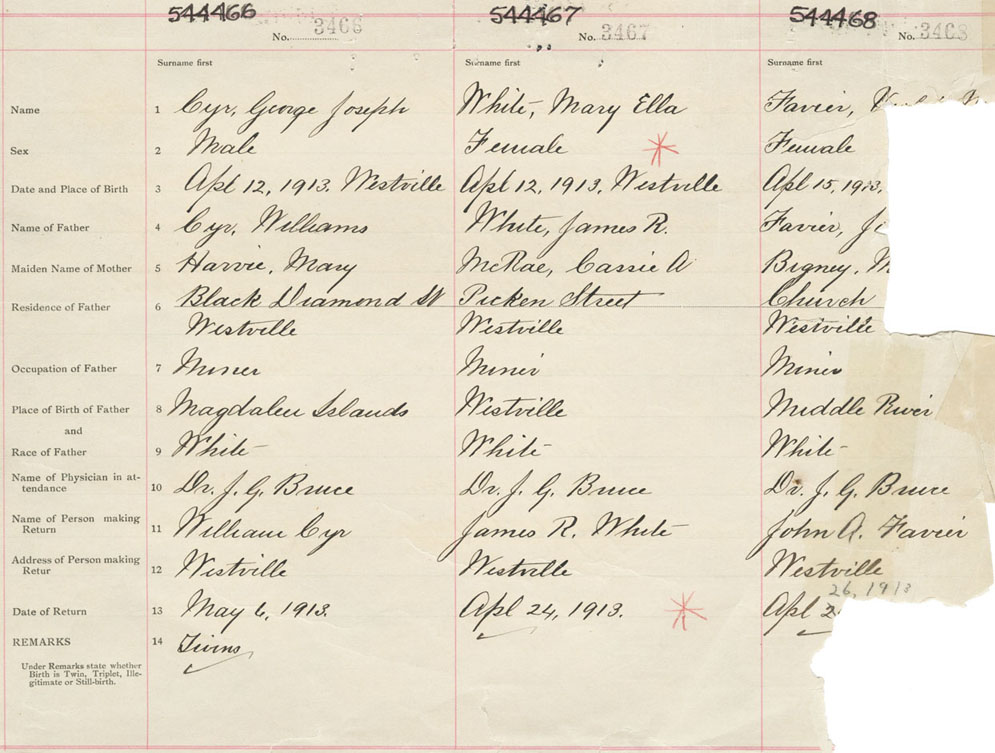 544466 544467 544468
No. 3466 No. 3467 No. 3468
Surname first Surname first Surname first
Name 1 Cyr, George Joseph White, Mary Ella Favier,
Sex 2 Male Female Female
Date and Place of Birth 3 Apl 12, 1913. Westville Apl 12, 1913, Westville Apl 15, 1913,
Name of Father 4 Cyr, Williams White, James R. Favier,
Maiden Name of Mother 5 Harvie, Mary McRae, Cassie A Bigney,
Residence of Father 6 Black Diamond St Picken Street Church
Westville Westville Westville
Occupation of Father 7 Miner Miner Miner
Place of Birth of Father 8 Magdalen Islands Westville Middle River
and
Race of Father 9 White White White
Name of Physician in at-
tendance 10 Dr. J. G. Bruce Dr. J. G. Bruce Dr. J. G. Bruce
Name of Person making
Return 11 William Cyr James R. White John A. Favier
Address of Person making
Retur 12 Westville Westville Westville
26, 1913
Date of Return 13 May 6, 1913. Apl 24, 1913. Apl 2
REMARKS 14 Twins
Under Remarks state whether
Birth is Twin, Triplet, Ille-
gitimate or Still-birth.